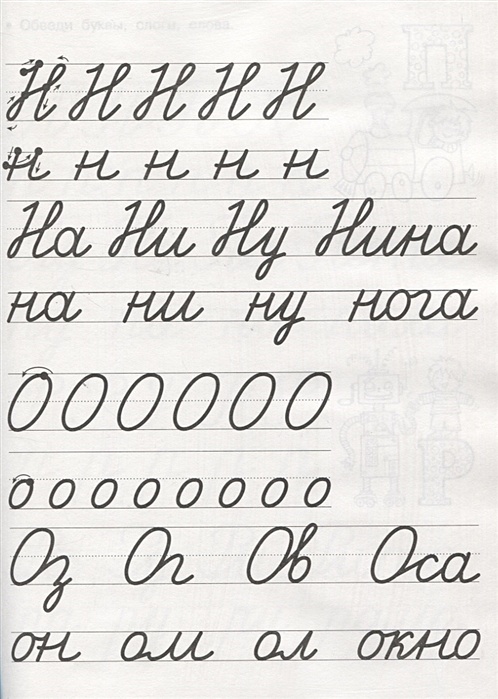 • Обведи буквы, слоги, слова.
Н Н Н Н Н
н н н н н
На Ни Ну Нина
на ни ну нога
О О О О О О
о о о о о о о о
Оз Ог Ов Оса
он ом ол окно